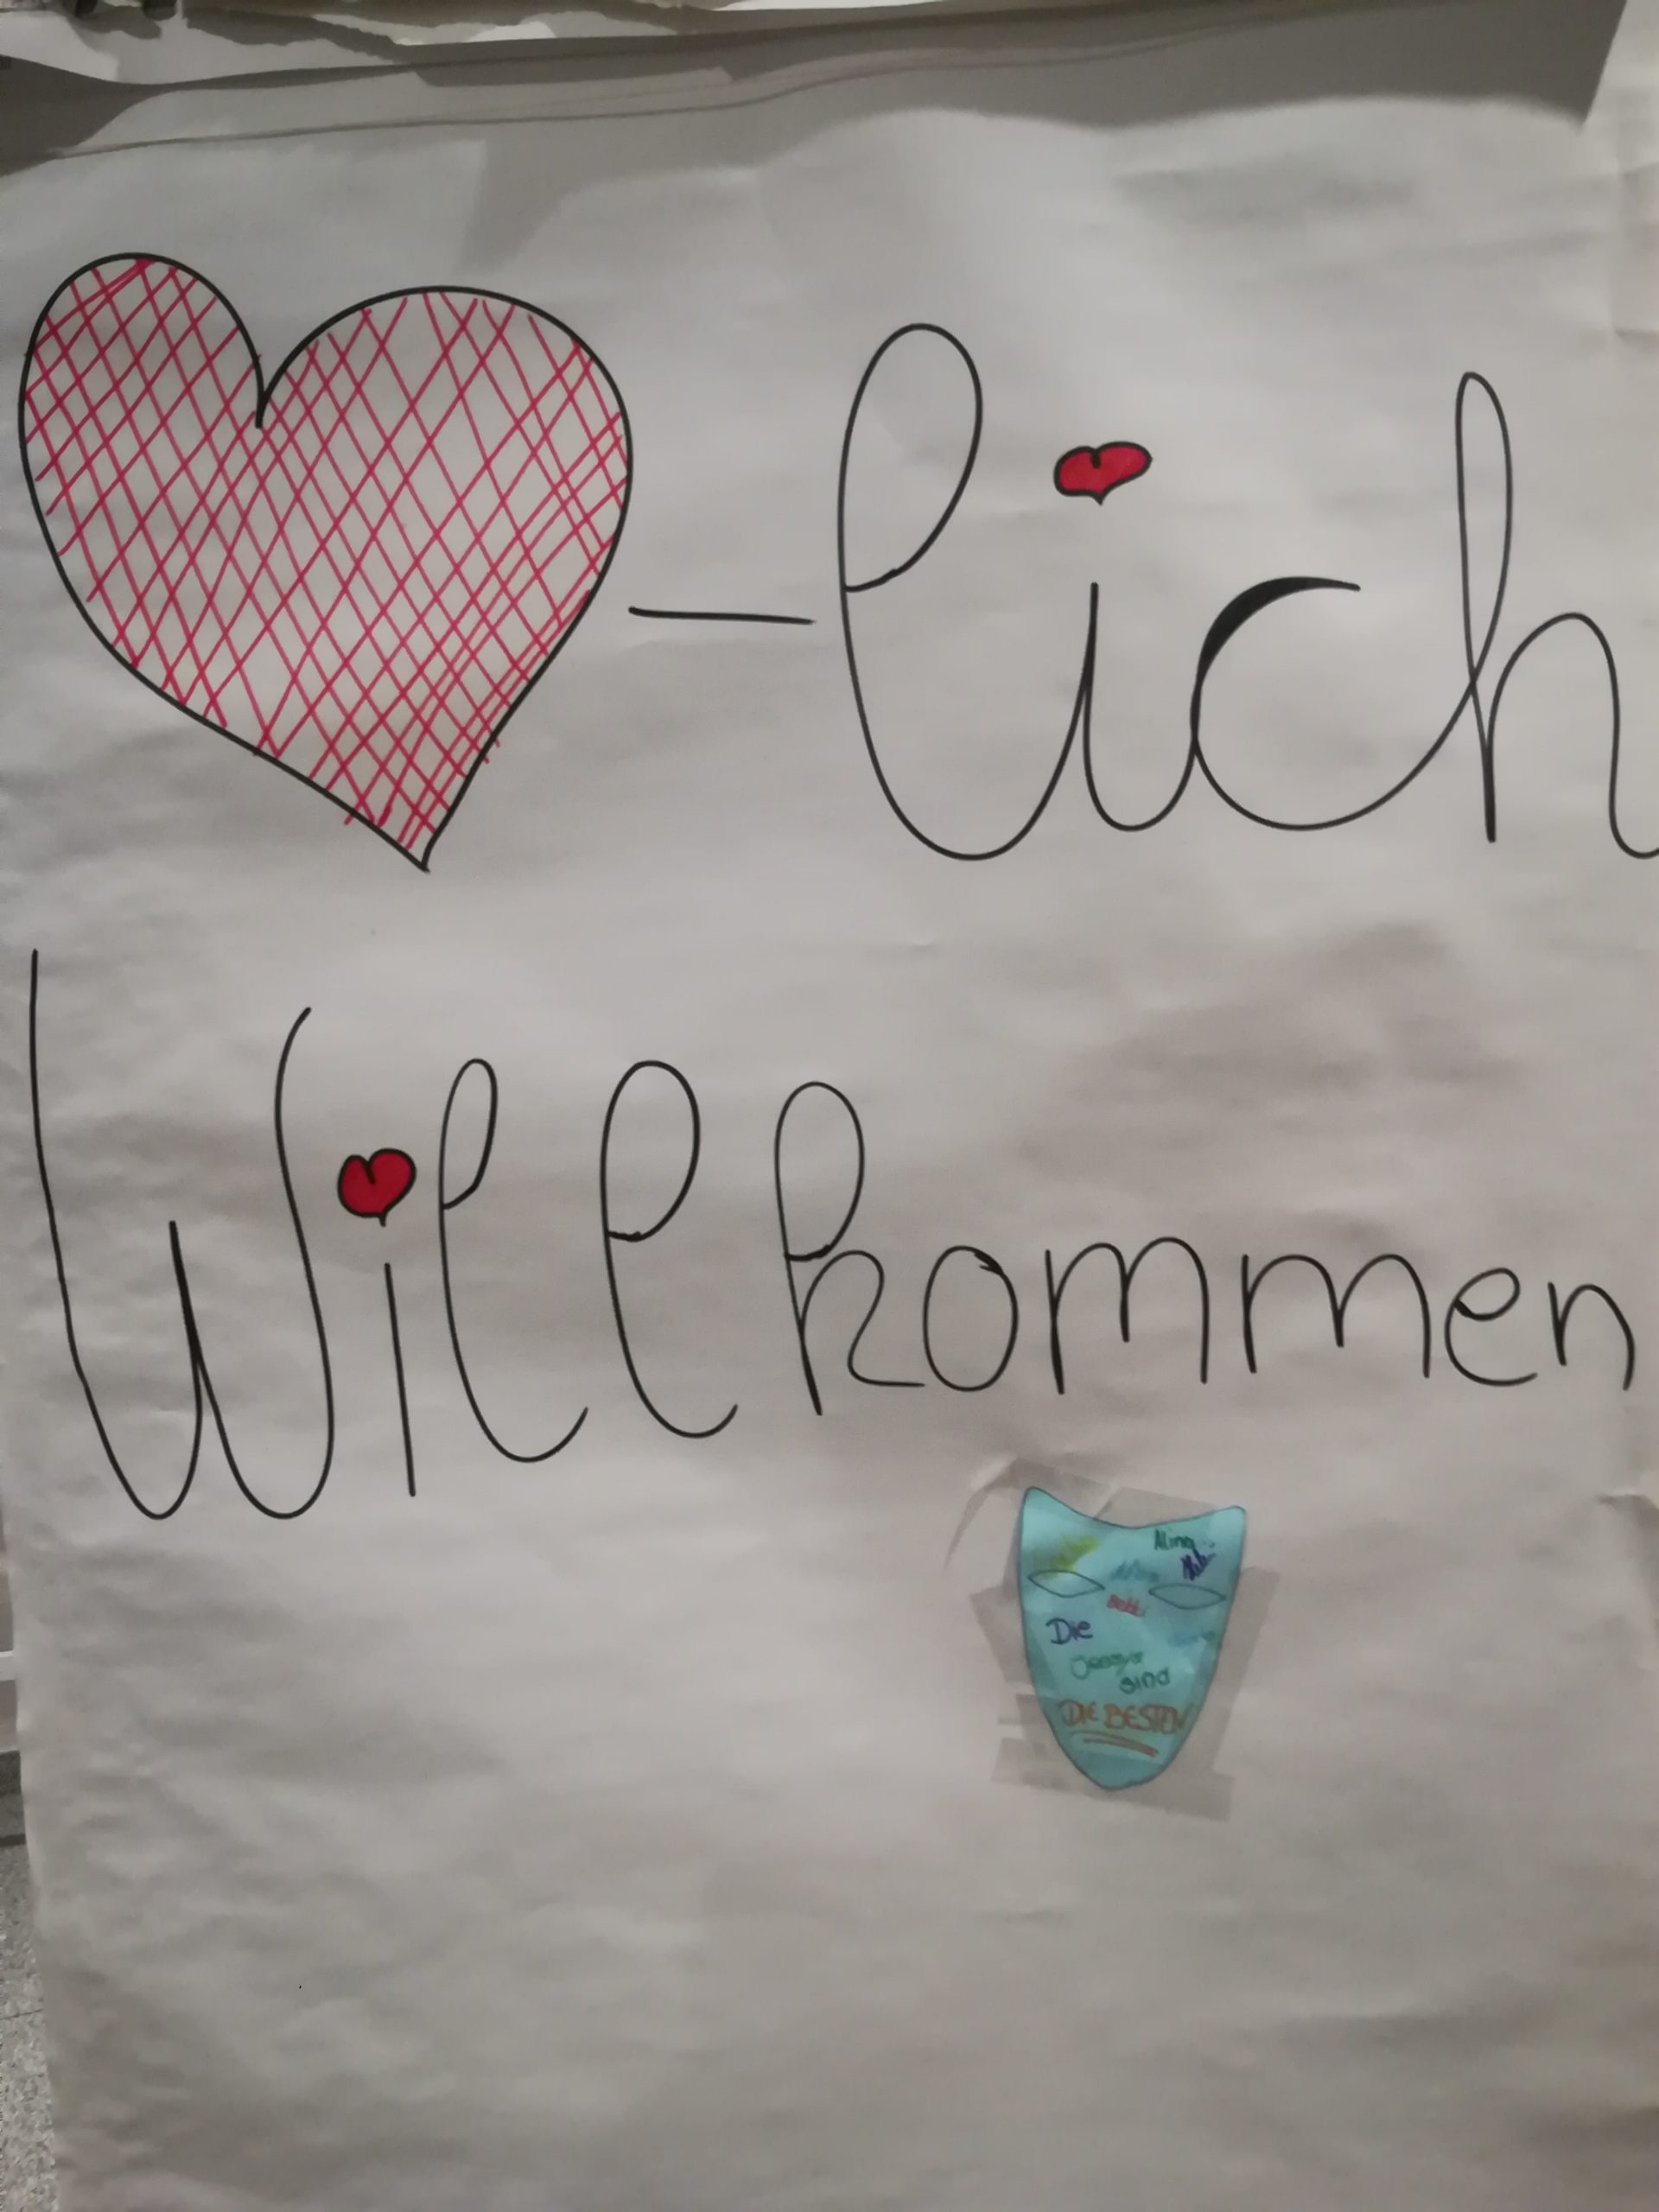 -lich
Willkommen
Alina
Die
sind
DIE BESTEN